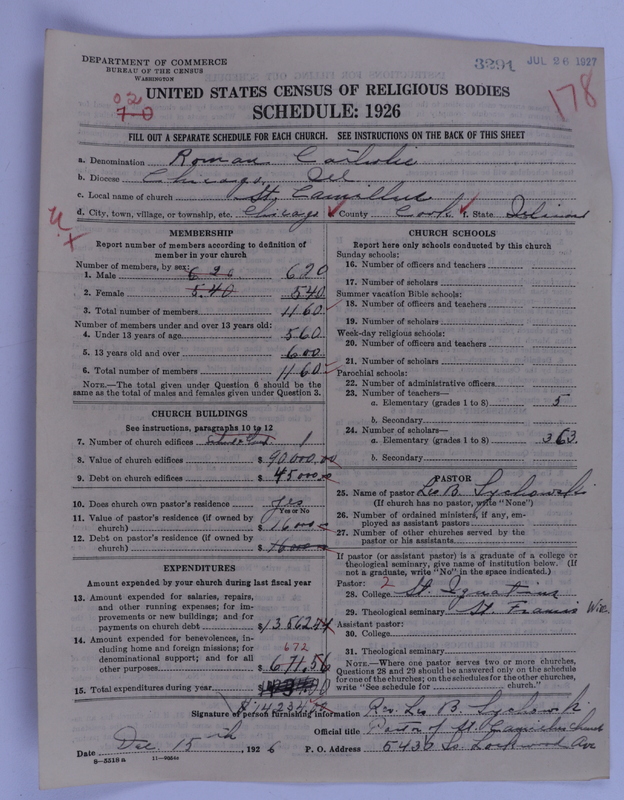 DEPARTMENT OF COMMERCE
BUREAU OF THE CENSUS
WASHINGTON
3291
JUL 26 1927
178
02
7-0
UNITED STATES CENSUS OF RELIGIOUS BODIES
SCHEDULE: 1926
FILL OUT A SEPARATE SCHEDULE FOR EACH CHURCH. SEE INSTRUCTIONS ON THE BACK OF THIS SHEET
a. Denomination Roman Catholic
b. Diocese Chicago, Ill
c. Local name of church St. Camillus
d. City, town, village, or township, etc. Chicago County Cook f. State Illinois
MEMBERSHIP
Report number of members according to definition of
member in your church
Number of members, by sex:
1. Male 620 620
2. Female 540 540
3. Total number of members 1160
Number of members under and over 13 years old:
4. Under 13 years of age 560
5. 13 years old and over 600
6. Total number of members 1160
NOTE.—The total given under Question 6 should be the
same as the total of males and females given under Question 3.
CHURCH BUILDINGS
See instructions, paragraphs 10 to 12
7. Number of church edifices 1
8. Value of church edifices $ 90000.00
9. Debt on church edifices $ 45000
10. Does church own pastor's residence? yes
Yes or No
11. Value of pastor's residence (if owned by
church) $ 16000
12. Debt on pastor's residence (if owned by
church) $ 16000
EXPENDITURES
Amount expended by your church during last fiscal year
13. Amount expended for salaries, repairs,
and other running expenses; for im-
provements or new buildings; and for
payments on church debt $ 13562.44
14. Amount expended for benevolences, in-
cluding home and foreign missions; for
denominational support; and for all
other purposes $ 671.56
672
15. Total expenditures during year $
$ 14234
CHURCH SCHOOLS
Report here only schools conducted by this church
Sunday schools:
16. Number of officers and teachers
17. Number of scholars
Summer vacation Bible schools:
18. Number of officers and teachers
19. Number of scholars
Week-day religious schools:
20. Number of officers and teachers
21. Number of scholars
Parochial schools:
22. Number of administrative officers
23. Number of teachers—
a. Elementary (grades 1 to 8) 5
b. Secondary
24. Number of scholars—
a. Elementary (grades 1 to 8) 363
b. Secondary
PASTOR
25. Name of pastor Leo B. Sychowski
(If church has no pastor, write "None")
26. Number of ordained ministers, if any, em-
ployed as assistant pastors
27. Number of other churches served by the
pastor or his assistants
If pastor (or assistant pastor) is a graduate of a college or
theological seminary, give name of institution below. (If
not a graduate, write "No" in the space indicated.)
Pastor: 2
28. College St. Ignatius
29. Theological seminary St. Francis Wisc.
Assistant pastor:
30. College
31. Theological seminary
NOTE.—Where one pastor serves two or more churches,
Questions 28 and 29 should be answered only on the schedule
for one of the churches; on the schedules for the other churches,
write "See schedule for church."
Signature of person furnishing information Rev. Leo B. Sychowski
Official title Pastor of St. Camillus church
Date Dec. 15th, 1926 P. O. Address 5430 So. Lockwood Ave
9-5518a 11-9054a